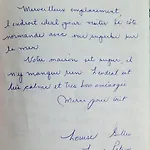 Merveilleux emplacement,
l'endroit idéal pour visiter la côte
normande avec une superbe vue
la mer.
Votre maison est super, il
n'y manque rien. L'endroit est
très calme et très bien aménagé
Merci pour tout
Louise